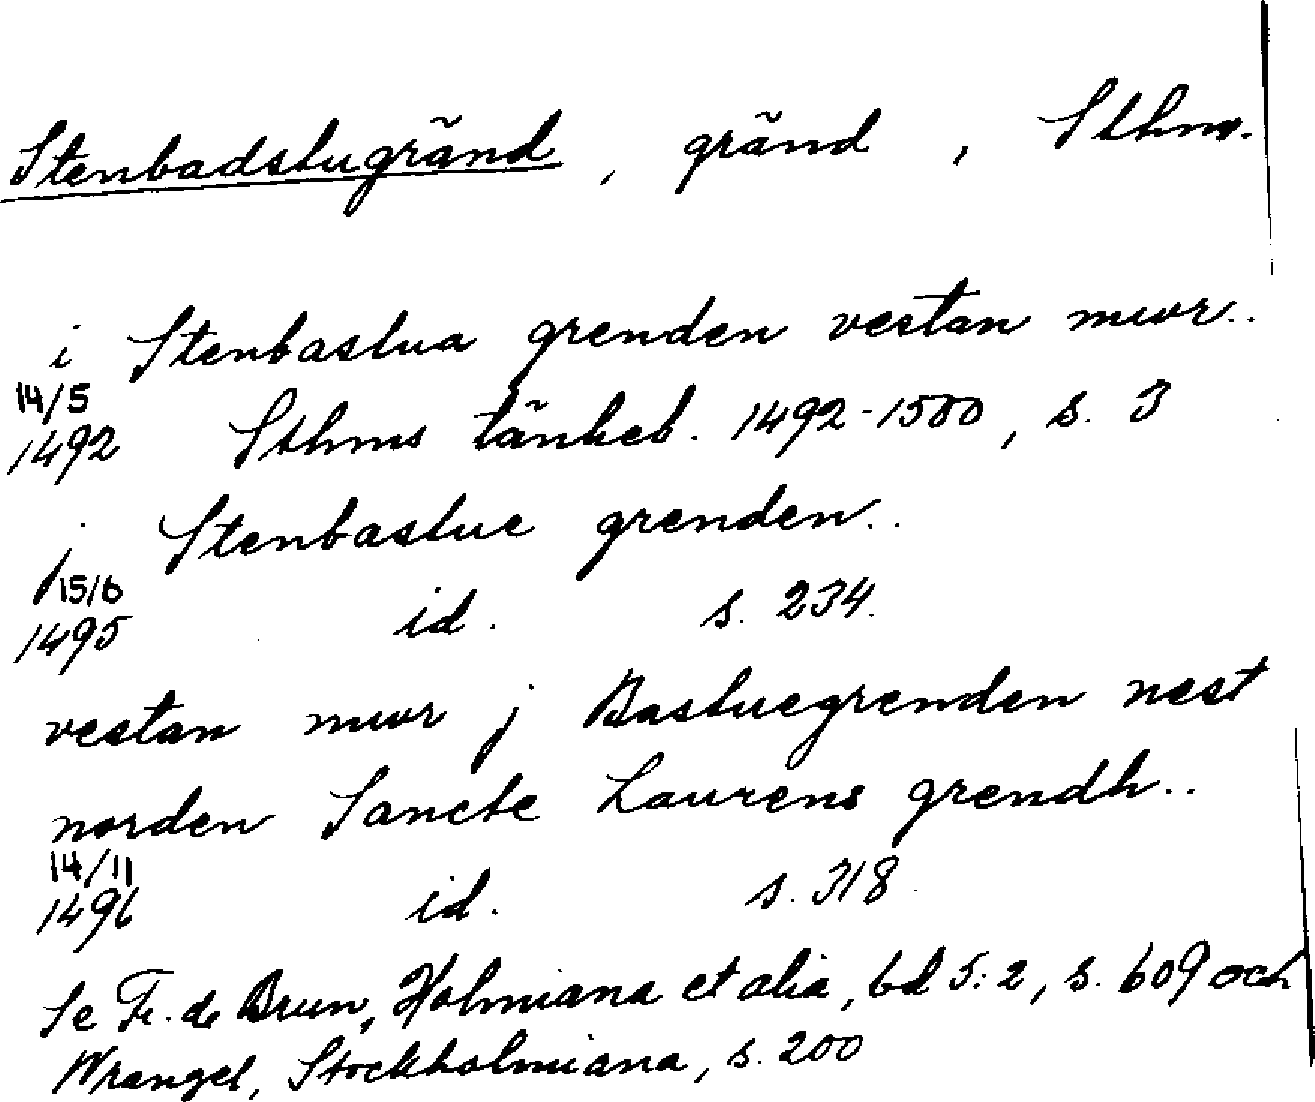 Stenbadstugränd, gränd, Sthm.
i Stenbastua grenden vestan mwr..
14/5
1492 Sthms tänkeb. 1492-1500, s. 3
j Stenbastue grenden..
15/6
1495 id. s. 234.
vestan mwr j Bastuegrenden nest
norden Sancte Laurens grendh..
14/11
1496 id. s. 318
Se Fr. de Brun, Holmiana et alia, bd 5:2, s. 609 och
Wrangel, Stockholmiana, s. 200